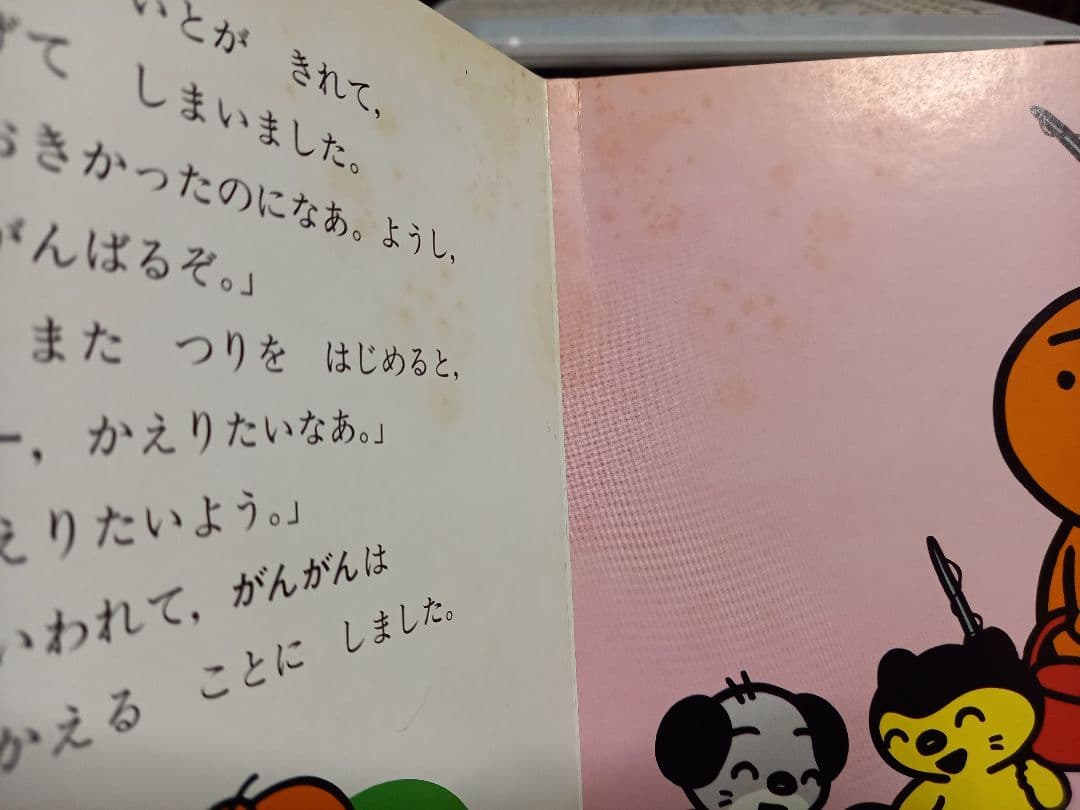 いとが　きれて，
げて　しまいました。
おきかったのになあ。ようし，
がんばるぞ。」
また　つりを　はじめると，
ー，かえりたいなあ。」
えりたいよう。」
いわれて，がんがんは
かえる　ことに　しました。